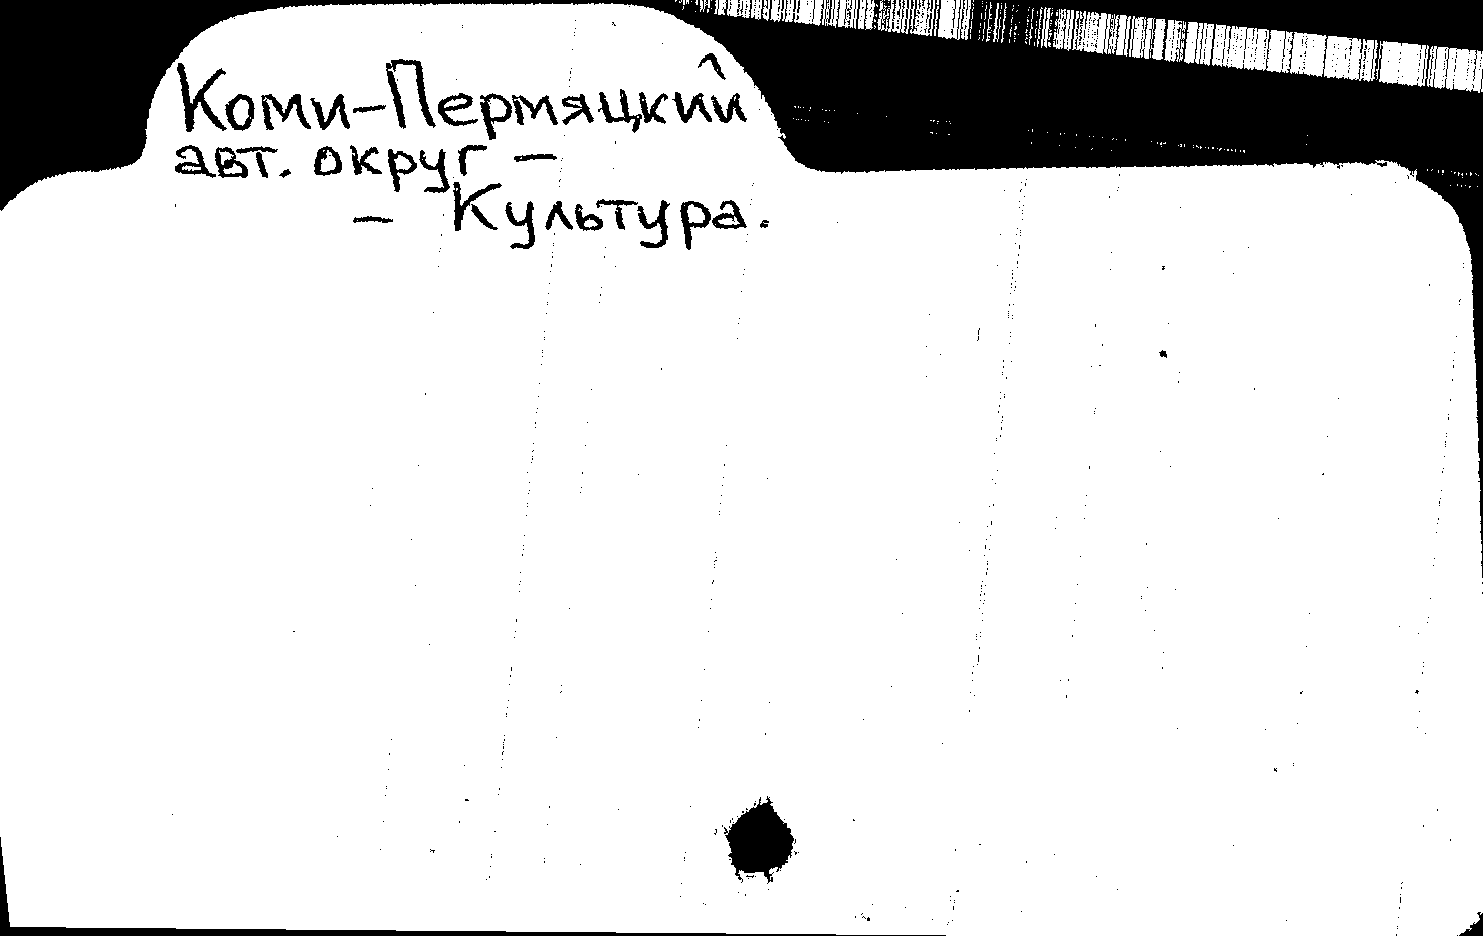 Коми-Пермяцкий
авт. округ -
- Культура.